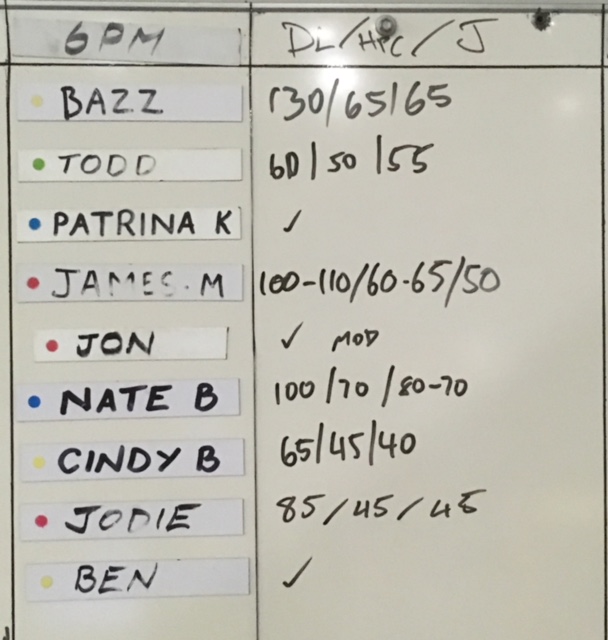 6PM DL/HPC/J
BAZZ 130/65/65
TODD 60/50/55
PATRINA K ✓
JAMES.M 100-110/60-65/50
JON ✓ MOD
NATE B 100/70/80-70
CINDY B 65/45/40
JODIE 85/45/45
BEN ✓